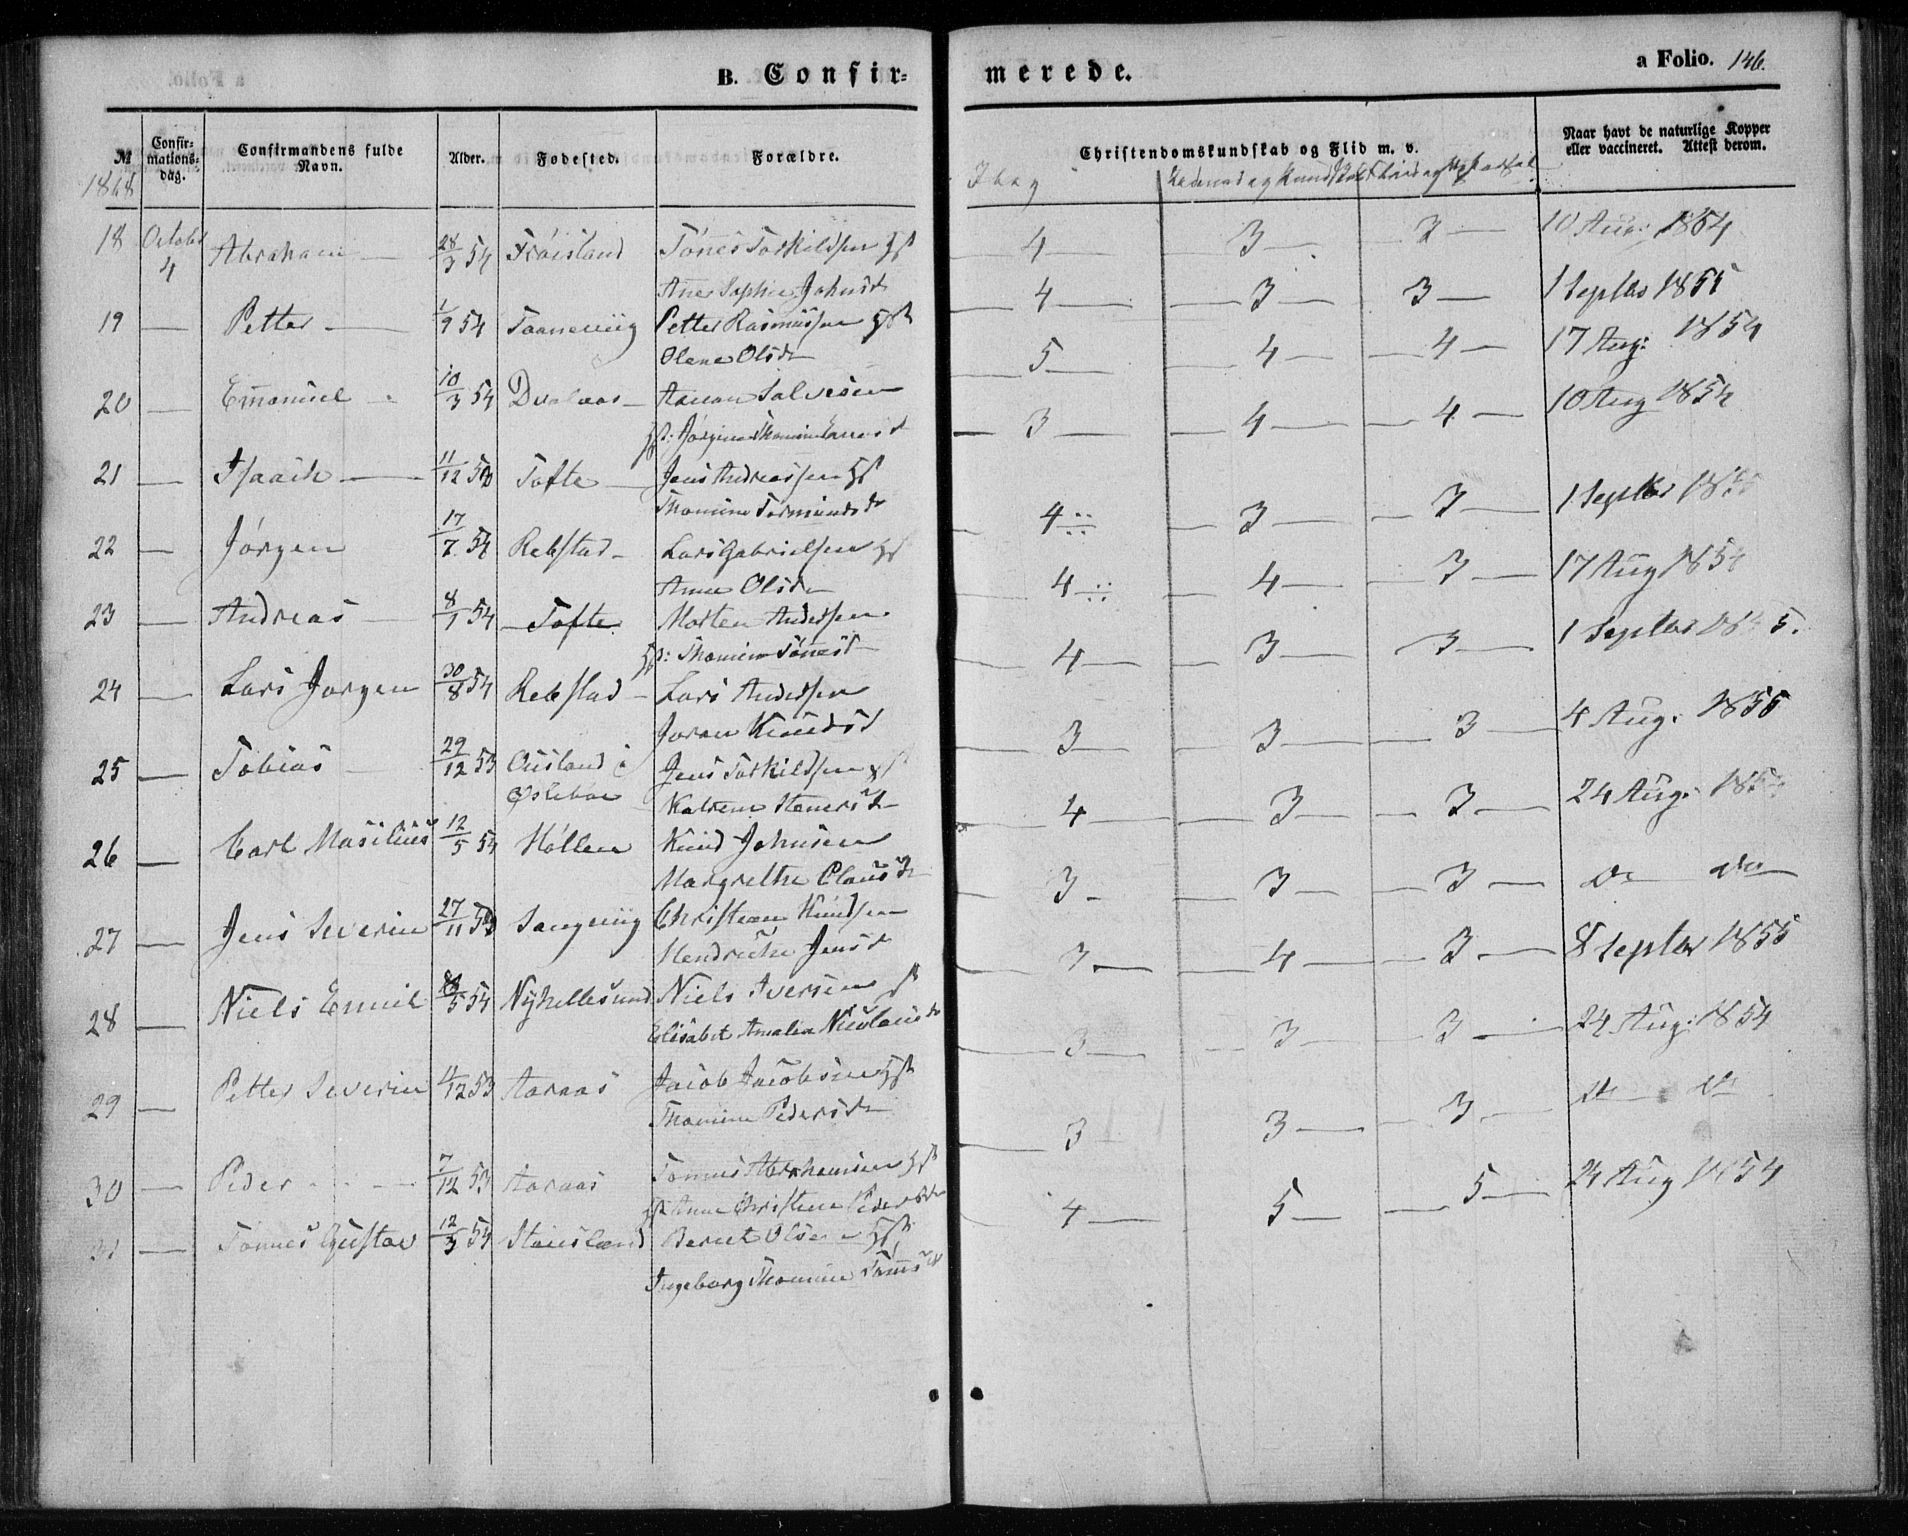 B. Confir=
merede.
a Folio. 146.
M
Confir=
mations=
dag.
Confirmandens fulde
Navn.
Alder.
Fodested.
Forældre.
Christendomskundskab og Flid m. v.
Naar havt de naturlige Kopper
eller vaccineret. Attest derom.
1868
18 October 4 Abraham 28/3 54 Frøisland Tønes Torkildsen
Ane Sophie Johnsd
4 3 3 10 Aug: 1854
19 Petter 1/9 54 Petter Rasmussen
Olene Olsd
4 3 3 1 Septbr 1855
20 Emanuel 10/3 54 Salvesen
5 4 4 17 Aug: 1854
21 Isaach 11/12 53 Tofte Jens Andreassen
Thomine
3 4 4 10 Aug 1854
22 Jørgen 17/7 54 Rebstad Lars Gabrielsen
Anne Olsd
4 3 3 1 Septbr
23 Andreas 8/1 54 Tofte Morten Andersen
Thomine Tønesd
4 4 3 17 Aug 1854
24 Lars Jørgen 30/8 54 Rebstad Lars Andersen
Joren Knudsd
4 3 3 1 Septbr 1855.
25 Tobias 29/12 53 Ousland i
Øslebøe
Jens Torkildsen
3 3 3 4 Aug: 1855
26 Carl Masilius 12/5 54 Høllen Knud Johnsen
Margrethe Clausd
4 3 3 24 Aug:
27 Jens Severin 27/11 53 Sangviig Christian Knudsen
Hendrikke Jensd
3 3 3 do do
28 Niels Emil 8/5 54 Nyhellesund Niels Iversen
Elisabet Amalia Nicolaisd
3 4 3 8 Septbr 1855
29 Petter Severin 4/12 53 Aaraas Jacob Jacobsen
Thomine Pedersd
3 3 3 24 Aug: 1854
30 Peder 7/12 53 Aaraas Tønnes Abrahamsen
Anne Christine Pedersd
3 3 3 do do
31 Tønnes Gustav 12/3 54 Stausland Bernt Olsen
Ingeborg Thomine
4 5 5 24 Aug 1854